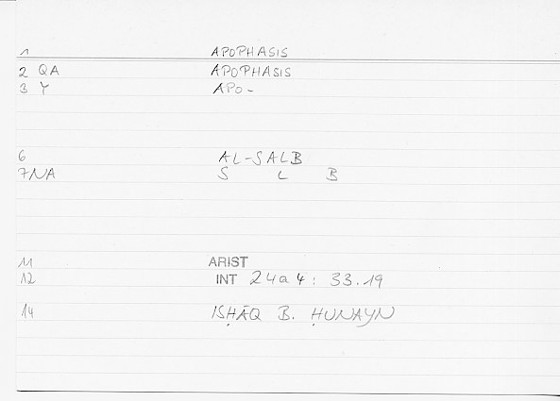 1 APOPHASIS
2 QA APOPHASIS
3 Y APO-
6 AL-SALB
7 NA S L B
11 ARIST
12 INT 24a4: 33.19
14 ISḤĀQ B. ḤUNAYN